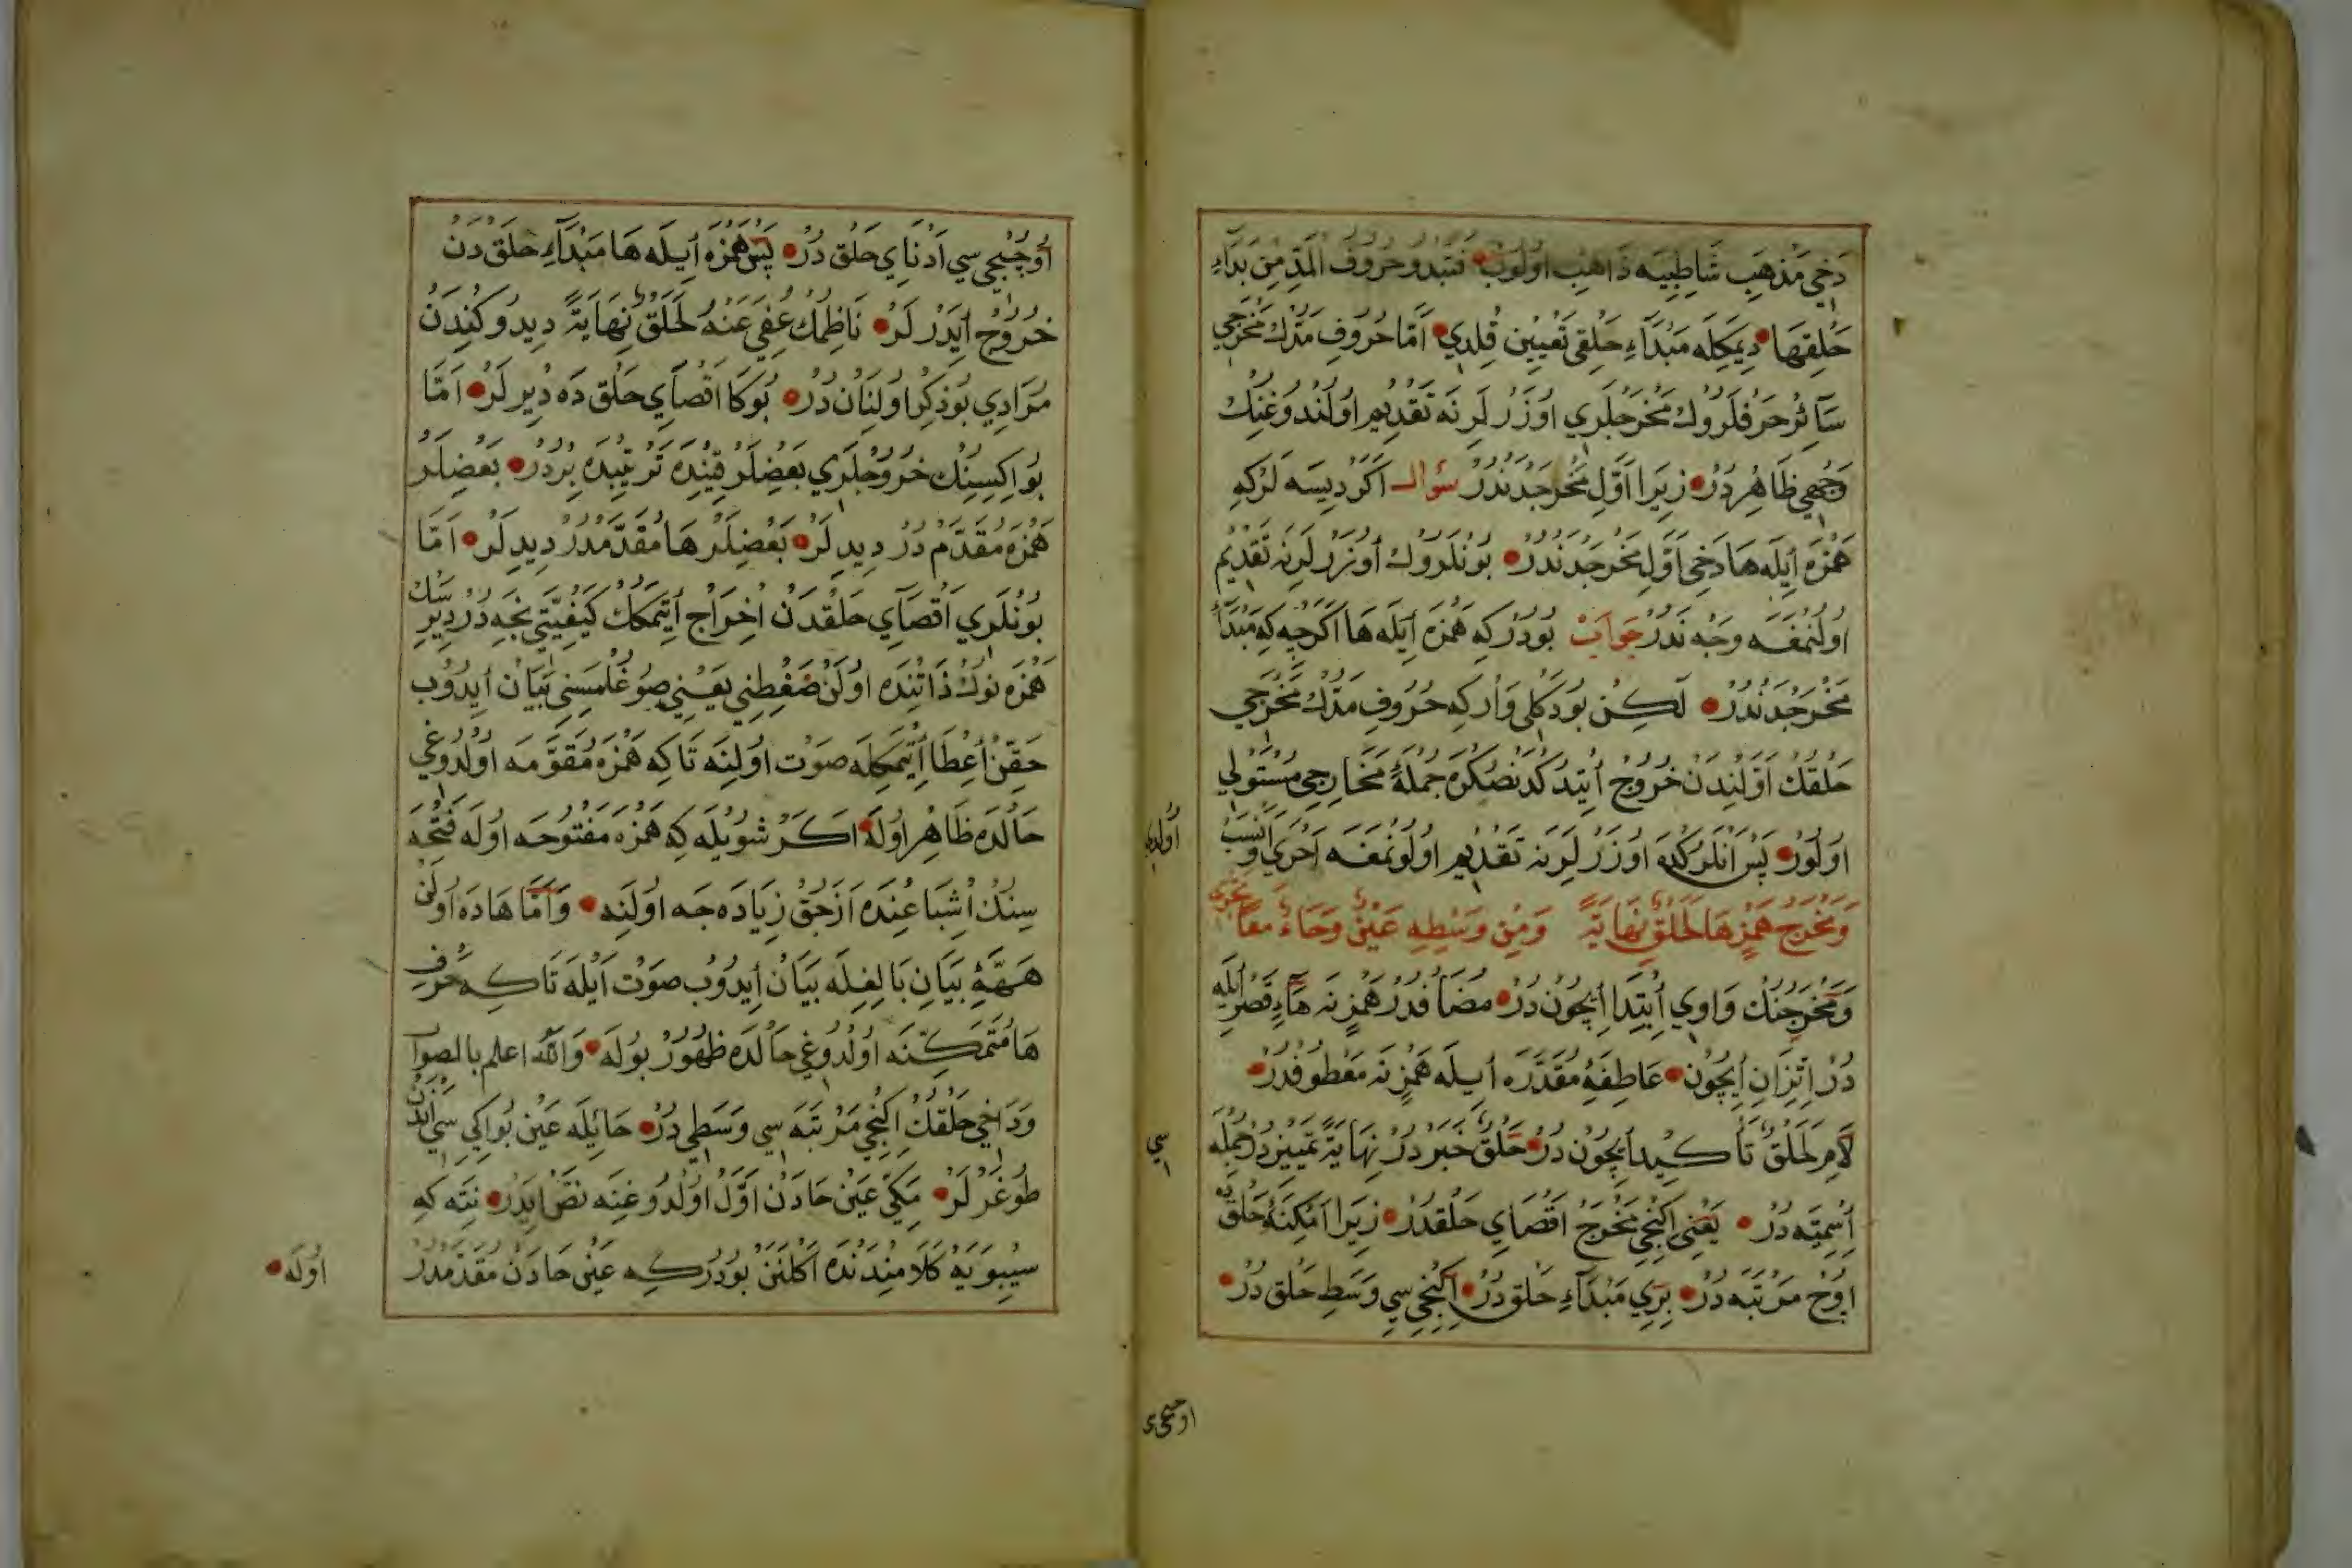 دَخِي مَذْهَبِ شَاطِبِيَه ذَاهِب اُولُوبْ فَتَبْدُو حُرُوفُ الْمَدِّ مِنْ بَدَاءِ
حَلْقِهَا دِيمَكِلَه مَبْدَاءِ حَلْقِى تَعْيِينْ قِلْدِي اَمَّا حُرُوفِ مَدّكْ مَخْرَجِي
سَآئِرْ حَرْفلَرُوكْ مَخْرَجْلَرِي اوُزَرْلَرِنَه تَقْدِيم اوُلُنْدُوغِنِكْ
وَجْهِي ظَاهِرْدُرْ زِيرَا اَوَّلِ مَخْرَجْدَنْدُرْ سُؤالـ اَكَرْ دِيسَه لَرْكِه
هَمْزَه اِيلَه هَا دَخِي اَوَّلِ مَخْرَجْدَنْدُرْ بُونْلَرُوكْ اُوزَرْلَرِنَه تَقْدِيم
اوُلُنْمَغَه وَجْه نَدُرْ جَوَابْ بُودُرْكِه هَمْزَه اِيلَه هَا اَكَرْچِه كِه مَبْدَاءِ
مَخْرَجْدَنْدُرْ لَكِنْ بُودَكْلِى وَارْكِه حُرُوفِ مَدّكْ مَخْرَجِي
حَلْقُكْ اَوَّلِنْدَنْ خُرُوجْ اِيتِدُكْدَنْصُكْرَه جُمْلَهٔ مَخَارِجِى مُسْتَوْلِي
اوُلُورْ پَسْ اَنْلَرُكْدَه اوُزَرْلَرِنَه تَقْدِيم اوُلُونْمَغَه اَحْرَي وَ اَنْسَبْ
اُولْدِي
وَمَخْرَجُ هَمْزِهَا لَحَلْقٌ نِهَايَةً وَمِنْ وَسْطِهِ عَيْنٌ وَحَاءٌ مَعًا
وَمَخْرَجِنِكْ وَاوِي اِبْتِدَا اِيچُونْ دُرْ مُضَافْدُرْ هَمْزِنَه هَاءِ قَصْرِ اِيلَه
دُرْ اِتِّزَانِ اِيچُونْ عَاطِفَهٔ مُقَدَّرَه اِيلَه هَمْزِنَه مَعْطُوفْدُرْ
لَامِ لَحَلْقٌ تَأكِيد اِيچُونْ دُرْ حَلْقٌ خَبَرْ دُرْ نِهَايَةً تَمْيِيزْدُرْ جُمْلَه
سِي
اِسْمِيَّه دُرْ يَعْنِى اِكِنْجِي مَخْرَجْ اَقْصَايِ حَلْقدُرْ زِيرَا اَمْكِنَهٔ حَلْقِيَه
اوُچْ مَرْتَبَه دُرْ بِرِي مَبْدَاءِ حَلْق دُرْ اِكِنْجِي سِي وَسَطِ حَلْق دُرْ
اوچنجى
اُوچُنْجِي سِي اَدْنَاي حَلْق دُرْ پَسْ هَمْزَه اِيلَه هَا مَبْدَاءِ حَلْق دَنْ
خُرُوجْ اِيدَرْلَرْ نَاظِمُكْ عُفِيَ عَنْهُ لَحَلْقٌ نِهَايَةً دِيدُوكِنْدَنْ
مُرَادِي بُو ذِكْر اوُلُنَانْ دُرْ بُوكَا اَقْصَاي حَلْق دَه دِيرلَرْ اَمَّا
بُو اِكِيسِنِكْ خُرُوجْلَرِي بَعْضِلَرْ قِتِنْدَه تَرْتِيبْدَه بِرْدُرْ بَعْضِلَرْ
هَمْزَه مُقَدَّم دُرْ دِيدِلَرْ بَعْضِلَرْ هَا مُقَدَّمْدُرْ دِيدِلَرْ اَمَّا
بُونْلَرِي اَقْصَايِ حَلْقدَنْ اِخْرَاجْ اِيتْمَكُكْ كَيْفِيَّتِي نَجَه دُرْ دِيرِ سَكْ
هَمْزَه نُوكْ ذَاتِنْدَه اوُلَنْ ضَغْطِنِي يَعْنِي صُوغُلْمَسِنِي بَيَانْ اِيدُوب
حَقِّنْ اِعْطَا اِيتْمَكِلَه صَوْت اوُلِنَه تَا كِه هَمْزَه مُقَوَّمَه اوُلْدُوغِي
حَالْدَه ظَاهِر اوُلَه اَكَرْ شُويْلَه كِه هَمْزَه مَفْتُوحَه اوُلَه فَتْحَه
سِنِكْ اِشْبَاعِنْدَه اَزْجَقْ زِيَادَه جَه اوُلِنَه وَاَمَّا هَادَه اوُلَنْ
هَهَّهٔ بَيَانِ بَالِغِلَه بَيَانْ اِيدُوبْ صَوْت اَيْلَه تَا كِه حَرْفِ
هَا مُتَمَكِّنَه اوُلْدُوغِي حَالْدَه ظُهُورْ بُولَه وَاللّٰهُ اعلم بالصواب
وَدَاخِي حَلْقُكْ اِكِنْجِي مَرْتَبَه سِي وَسَطِي دُرْ حَا يِلَه عَيْن بُو اِكِي سِي اَنْدَنْ
طُوغَرْلَرْ مَكِّي عَيْن حَادَنْ اَوَّلْ اوُلْدُوغِنَه نَصّ اِيدَرْ نِتَه كِه
سِيبَوَيْه كَلَامِنْدَنْدَه اَكْلَنَنْ بُودُرْكِه عَيْن حَادَنْ مُقَدَّمْدُرْ
اوُلَه